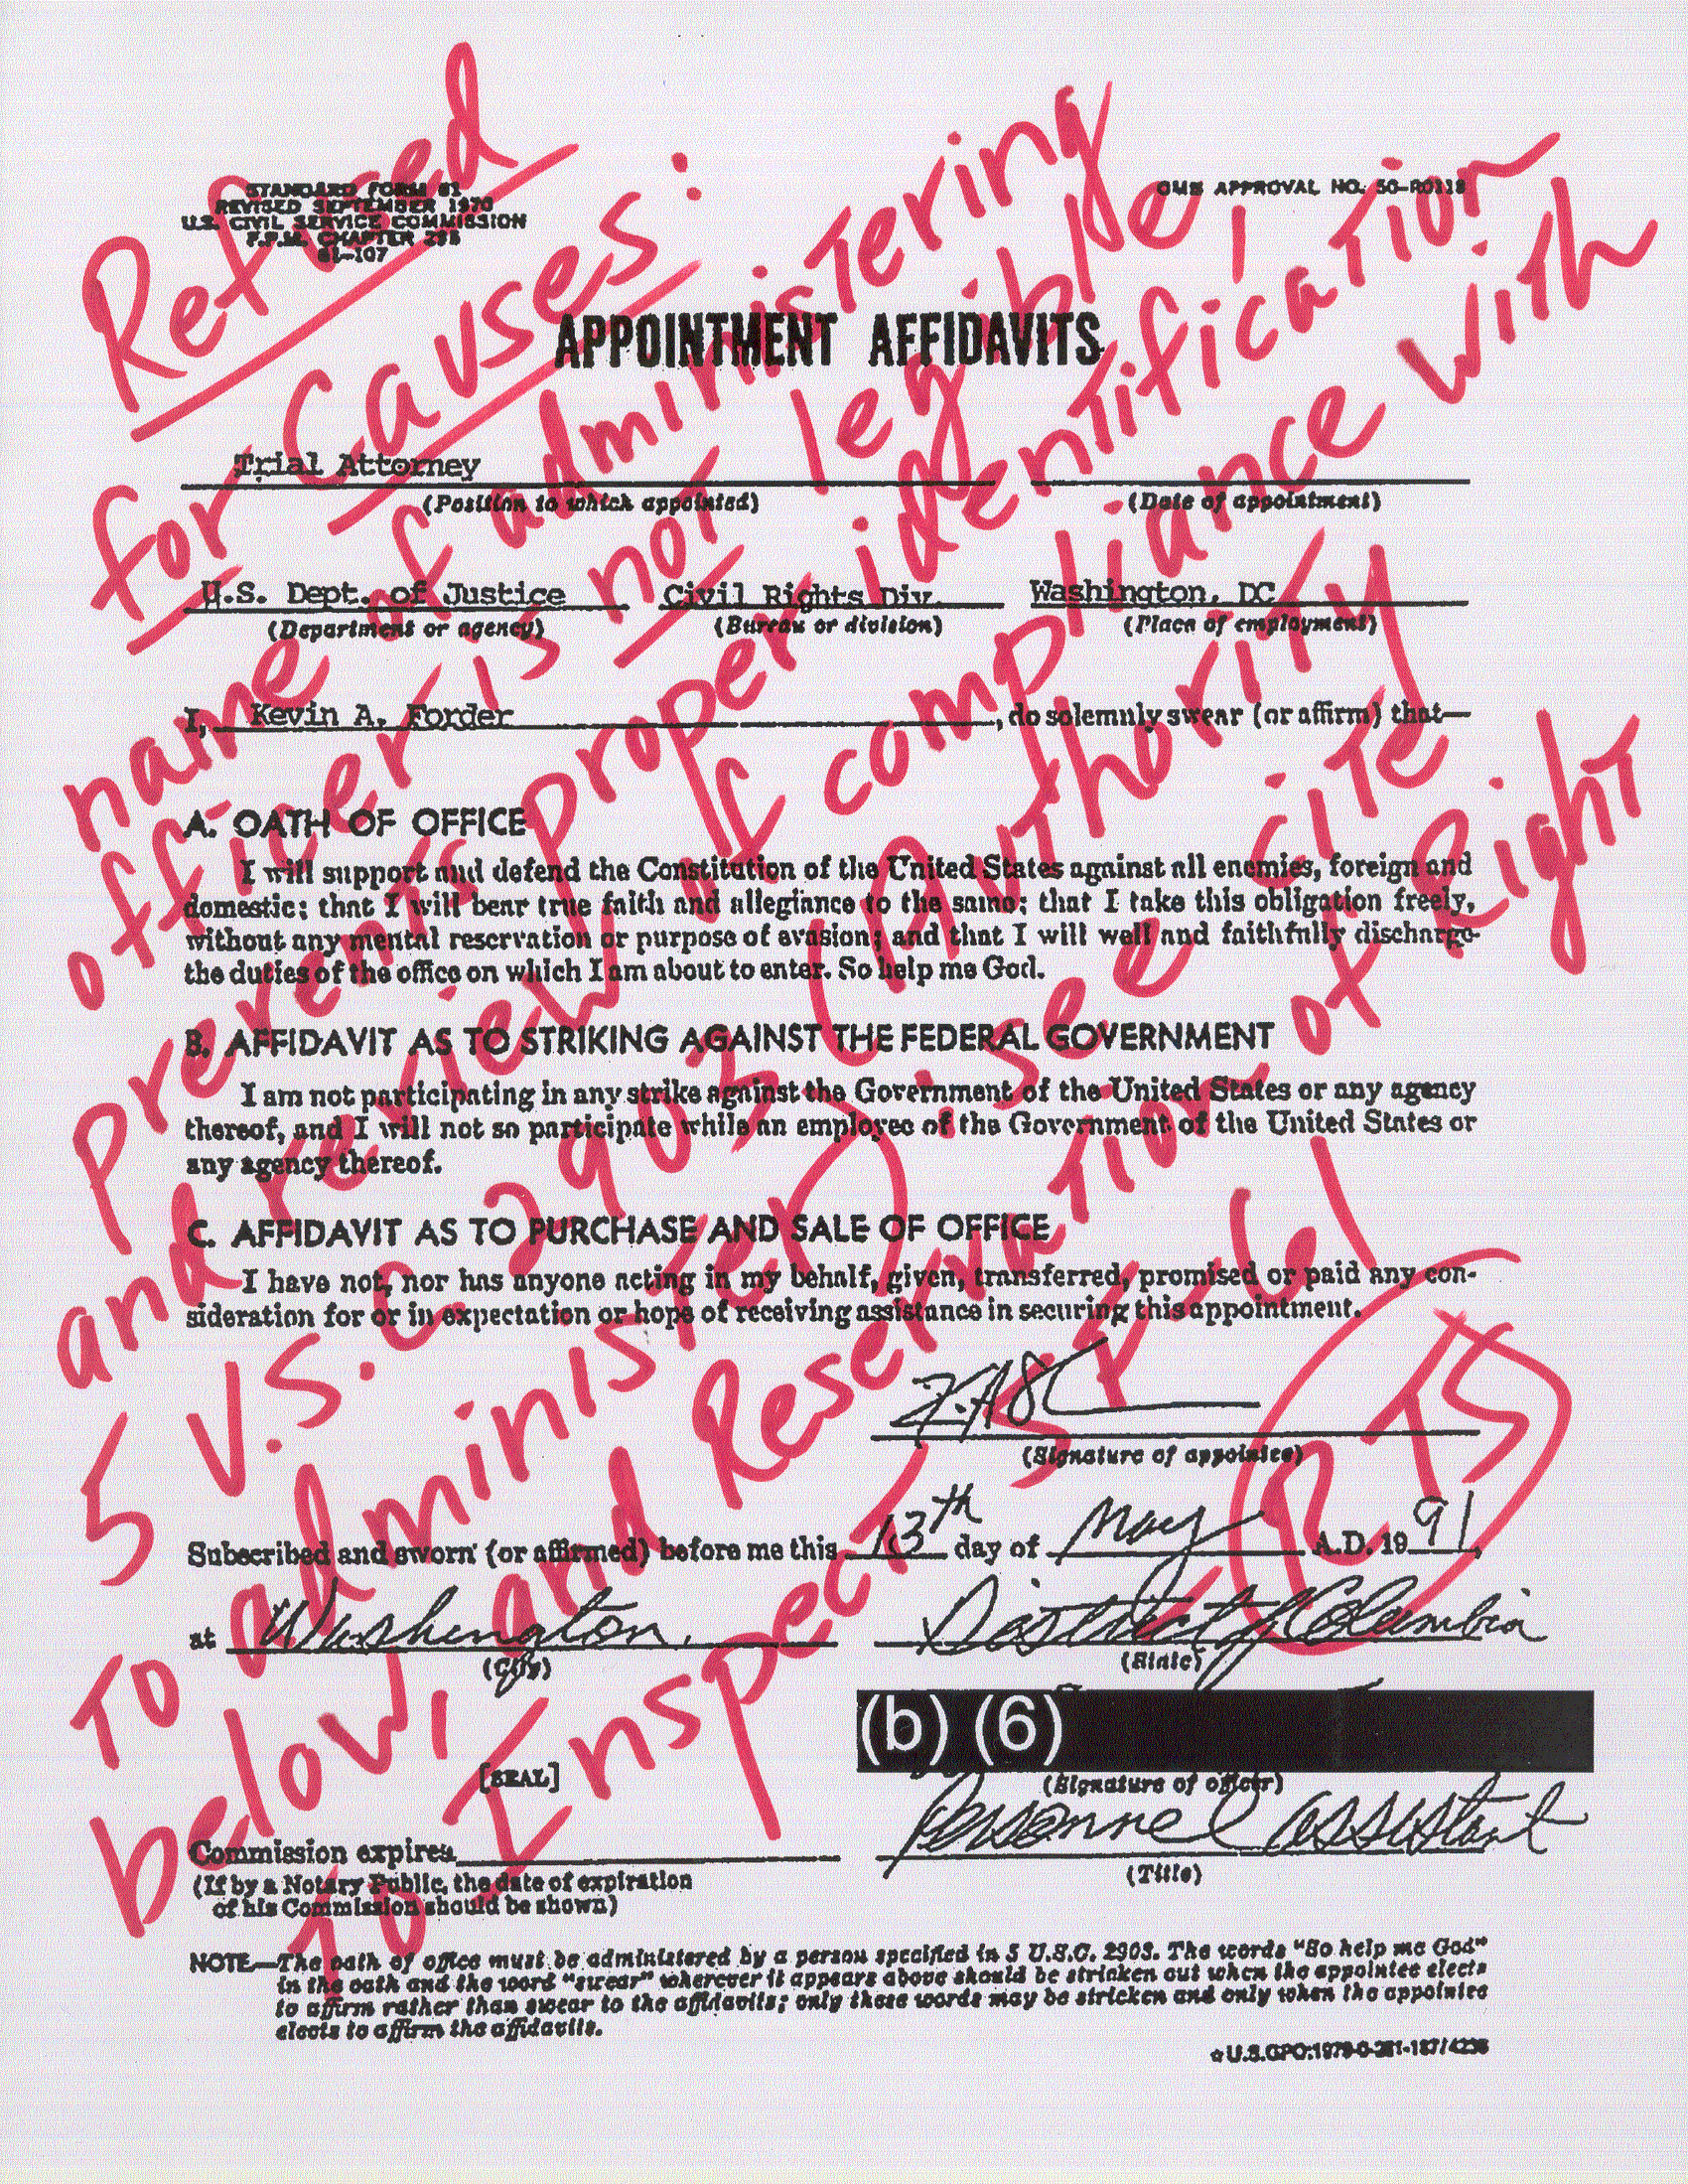 STANDARD FORM 61
REVISED SEPTEMBER 1970
U.S. CIVIL SERVICE COMMISSION
F.P.M. CHAPTER 295
61-107
OMB APPROVAL NO. 50-R0118
APPOINTMENT AFFIDAVITS
Trial Attorney
(Position to which appointed) (Date of appointment)
U.S. Dept. of Justice Civil Rights Div. Washington, DC
(Department or agency) (Bureau or division) (Place of employment)
I, Kevin A. Forder, do solemnly swear (or affirm) that—
A. OATH OF OFFICE
I will support and defend the Constitution of the United States against all enemies, foreign and
domestic; that I will bear true faith and allegiance to the same; that I take this obligation freely,
without any mental reservation or purpose of evasion; and that I will well and faithfully discharge
the duties of the office on which I am about to enter. So help me God.
B. AFFIDAVIT AS TO STRIKING AGAINST THE FEDERAL GOVERNMENT
I am not participating in any strike against the Government of the United States or any agency
thereof, and I will not so participate while an employee of the Government of the United States or
any agency thereof.
C. AFFIDAVIT AS TO PURCHASE AND SALE OF OFFICE
I have not, nor has anyone acting in my behalf, given, transferred, promised or paid any con-
sideration for or in expectation or hope of receiving assistance in securing this appointment.
(Signature of appointee)
Subscribed and sworn (or affirmed) before me this 13th day of May A.D. 1991,
at Washington, District of Columbia
(City) (State)
(b) (6)
[SEAL] (Signature of officer)
Personnel assistant
Commission expires (Title)
(If by a Notary Public, the date of expiration
of his Commission should be shown)
NOTE—The oath of office must be administered by a person specified in 5 U.S.C. 2903. The words "So help me God"
in the oath and the word "swear" wherever it appears above should be stricken out when the appointee elects
to affirm rather than swear to the affidavits; only these words may be stricken and only when the appointee
elects to affirm the affidavits.
Refused
for Causes:
name of administering
officer is not legible,
prevents proper identification
and review of compliance with
5 U.S.C 2903 (Authority
To administer); see cite
below, and Reservation of Right
To Inspect SF-61
RTS